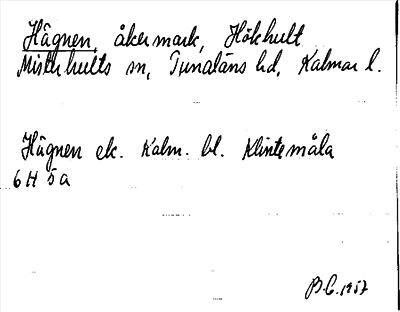 Hägnen, åkermark, Hökhult
Misterhults sn, Tunaläns hd, Kalmar l.
Hägnen ek. Kalm. bl. Klintemåla
6 H 5 a
B.C. 1957